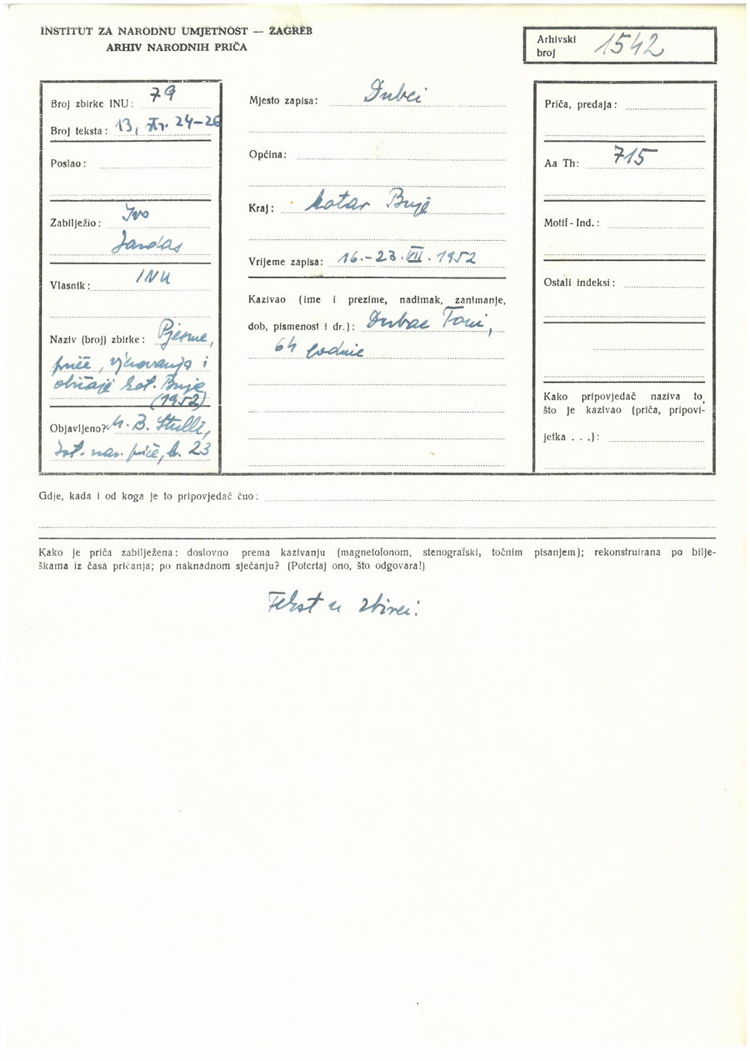 INSTITUT ZA NARODNU UMJETNOST — ZAGREB
ARHIV NARODNIH PRIČA
Arhivski broj 1542
Broj zbirke INU: 79
Broj teksta: 13, str. 24-26
Poslao:
Zabilježio: Ivo
Jardas
Vlasnik: INU
Naziv (broj) zbirke: Pjesme,
priče, vjerovanja i
običaji kot. Buje
(1952)
Objavljeno? M. B. Stulli,
Ist. nar. priče, br. 23
Mjesto zapisa: Dubci
Općina:
Kraj: kotar Buje
Vrijeme zapisa: 16.-23.VII.1952
Kazivao (ime i prezime, nadimak, zanimanje,
dob, pismenost i dr.): Dubac Toni,
64 godine
Priča, predaja:
Aa Th: 715
Motif-Ind.:
Ostali indeksi:
Kako pripovjedač naziva to,
što je kazivao (priča, pripovi-
jetka . . .):
Gdje, kada i od koga je to pripovjedač čuo:
Kako je priča zabilježena: doslovno prema kazivanju (magnetofonom, stenografski, točnim pisanjem); rekonstruirana po bilje-
škama iz časa pričanja; po naknadnom sjećanju? (Potcrtaj ono, što odgovara!)
Tekst u zbirci!